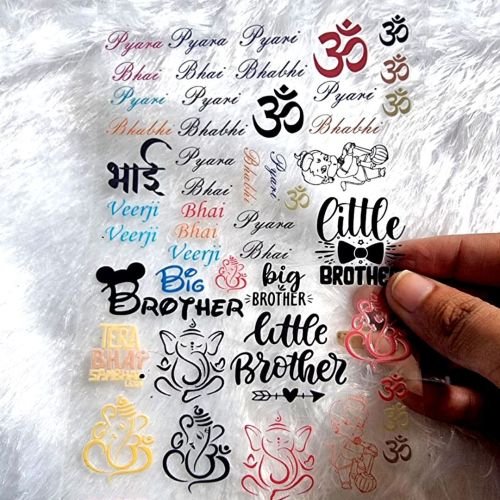 Pyara Pyara Pyari ॐ ॐ
Bhai Bhai Bhabhi ॐ
Pyari Pyari ॐ Pyari ॐ
Bhabhi Bhabhi Bhabhi
भाई Pyara Bhabhi Pyari
Bhai ॐ
Veerji Bhai Pyara little
Veerji Bhai Bhai BROTHER
Veerji
Big big
BROTHER BROTHER
TERA little
BHAI Brother
ॐ
ॐ
ॐ